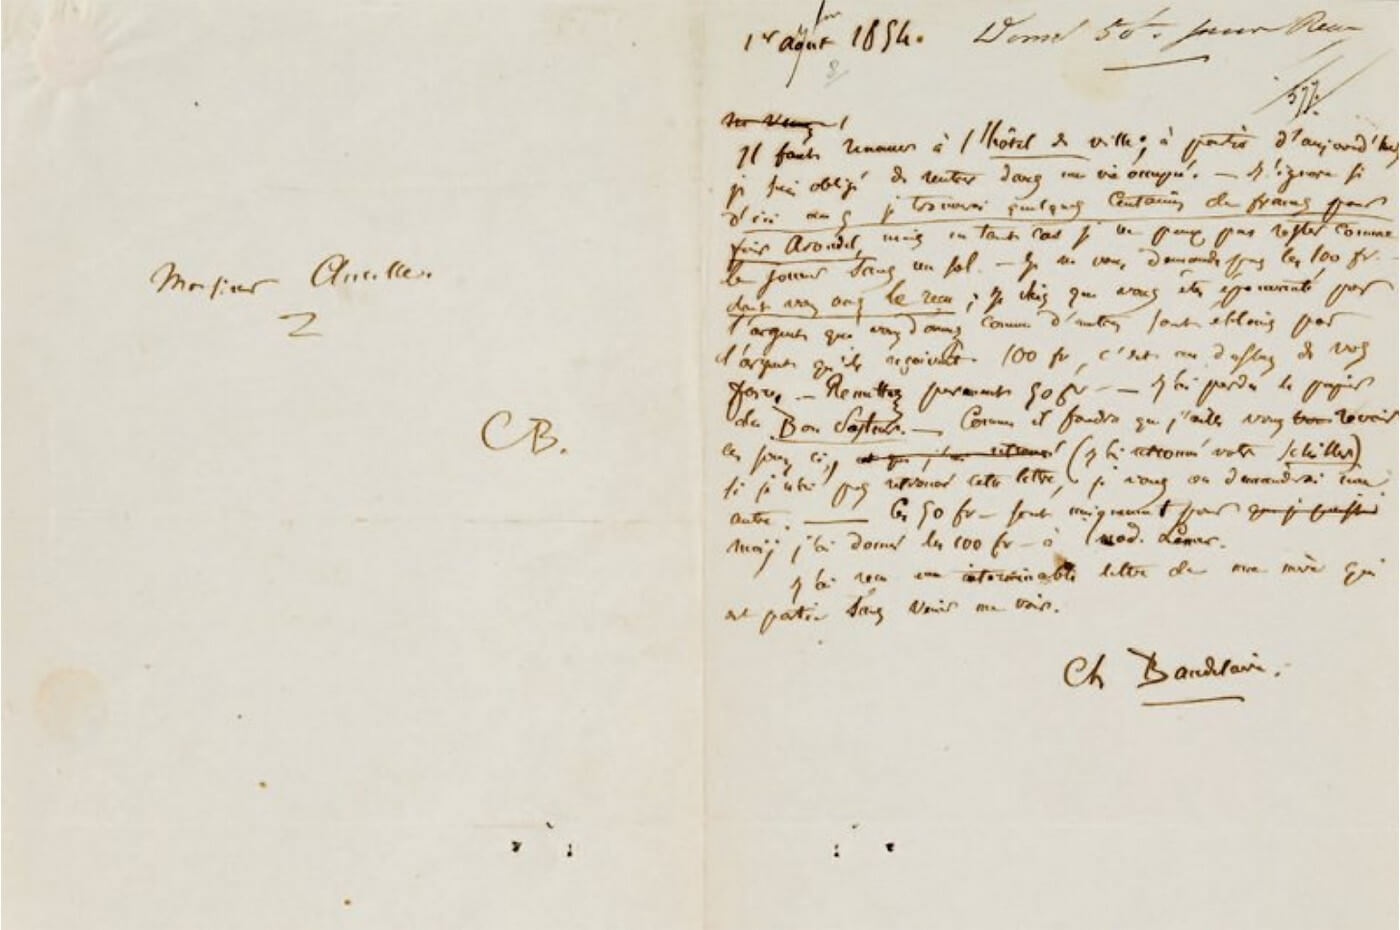 Monsieur Ancelle.
CB.
1er août 1854. Donné 50f. sur Reçu
577.
Il faut renoncer à l'hôtel de ville; à partir d'aujourd'hui
je suis obligé de rentrer dans ma vie occupée. — J'ignore si
d'ici au 5 je trouverai quelques centaines de francs pour
fuir Arondel, mais en tout cas je ne peux pas rester comme
ce jour sans un sol. — Je ne vous demande pas les 100 fr. —
dont vous avez le reçu; je sais que vous êtes épouvanté par
l'argent que vous donnez comme d'autres sont éblouis par
l'argent qu'ils reçoivent. 100 fr, c'est au dessus de vos
forces. — Remettez 50 fr — — J'ai perdu le papier
du Bon Pasteur. — Comme il faudra que j'aille vous revoir
ces jours ci, (j'ai retrouvé votre Schiller)
si je n'ai pas retrouvé cette lettre, je vous en demanderai une
autre. — Ces 50 fr — sont uniquement pour
moi; j'ai donné les 100 fr — à mad. Lemer.
J'ai reçu une interminable lettre de ma mère qui
est partie sans venir me voir.
Ch Baudelaire.